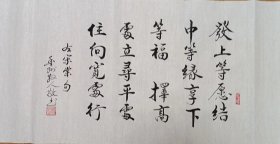 發上等愿结
中等缘享下
等福 擇高
處立尋平處
住向寬處行